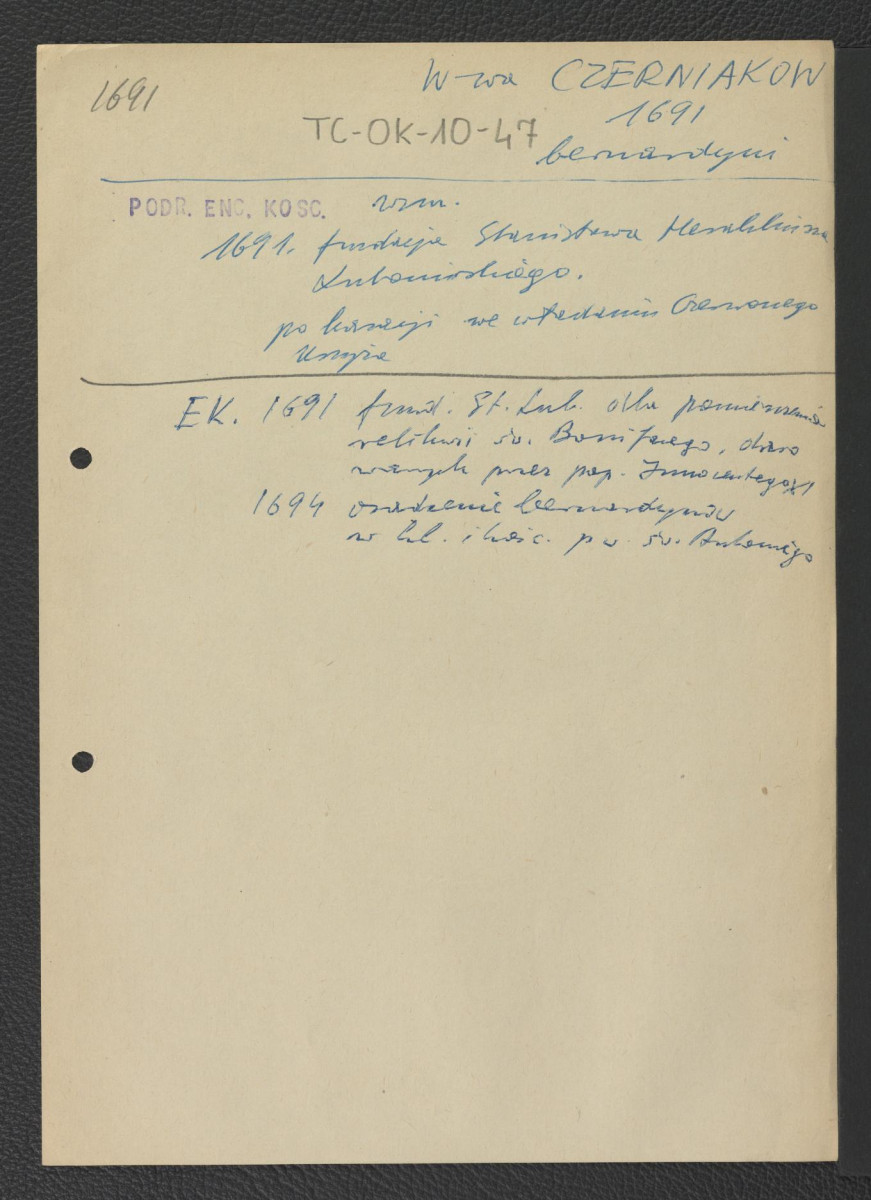 1691
W-wa CZERNIAKOW
1691
TC-OK-10-47
bernardyni
PODR. ENC. KOSC. wzm.
1691. fundacja Stanisława Herakliusza
Lubomirskiego.
po kasacji we władaniu Czerwonego
Krzyża
EK. 1691 fund. St. Lub. dla pomieszczenia
relikwii św. Bonifacego, daro
wanych przez pap. Innocentego XI
1694 osadzenie bernardynów
w kl. i kośc. p w. św. Antoniego